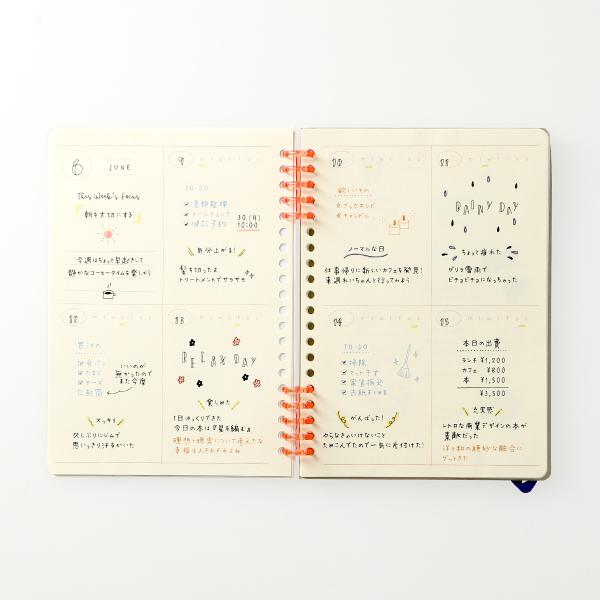 6 JUNE
This Week's Focus
朝を大切にする
今週はちょっと早起きして
静かなコーヒータイムを楽しもう
9
m t w t f s s
TO-DO
書類整理
メールチェック
歯医者予約
30(月)
10:00
気分上がる!
髪を切ったよ
トリートメントでサラサラ
10
m t w t f s s
欲しいもの
☆ブックエンド
☆キャンドル
ノーマルな日
仕事帰りに新しいカフェを発見!
来週れいちゃんと行ってみよう
11
m t w t f s s
RAINY DAY
ちょっと疲れた
ゲリラ雷雨で
ビチョビチョになっちゃった
12
m t w t f s s
買うもの
食パン
たまご
チーズ
封筒
いいのが
無かったので
また今度
スッキリ
久しぶりにジムで
思いっきり汗をかいた
13
m t w t f s s
RELAX DAY
楽しみた
1日ゆっくりできた
今日の本は「星を編む」
理想と現実について考えたな
幸福は人それぞれよね
14
m t w t f s s
TO-DO
掃除
マット干す
家賃振込
古紙まとめる
がんばった!
やらなきゃいけないこと
ためこんでたので一気に片付けた!
15
m t w t f s s
本日の出費
ランチ ¥1,200
カフェ ¥800
本 ¥1,500
¥3,500
充実感
レトロな商業デザインの本が
素敵だった
洋と和の絶妙な融合に
グッときた